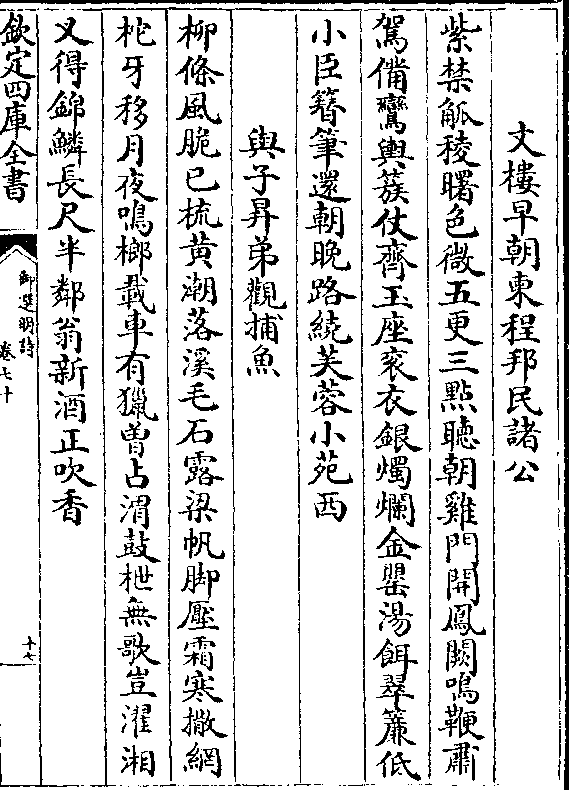 文樓早朝柬程邦民諸公
紫禁觚稜曙色微五更三點聽朝雞門開鳳闕鳴鞭肅
駕備鸞輿簇仗齊玉座衮衣銀燭爛金罌湯餌翠簾低
小臣簪筆還朝晚路繞芙蓉小苑西
與子昇弟觀捕魚
柳條風脆已梳黄潮落溪毛石露梁帆脚壓霜寒撒網
柁牙移月夜鳴榔載車有獵曽占渭鼓枻無歌豈濯湘
又得錦鱗長尺半鄰翁新酒正吹香
欽定四庫全書
御選明詩
卷七十
十七